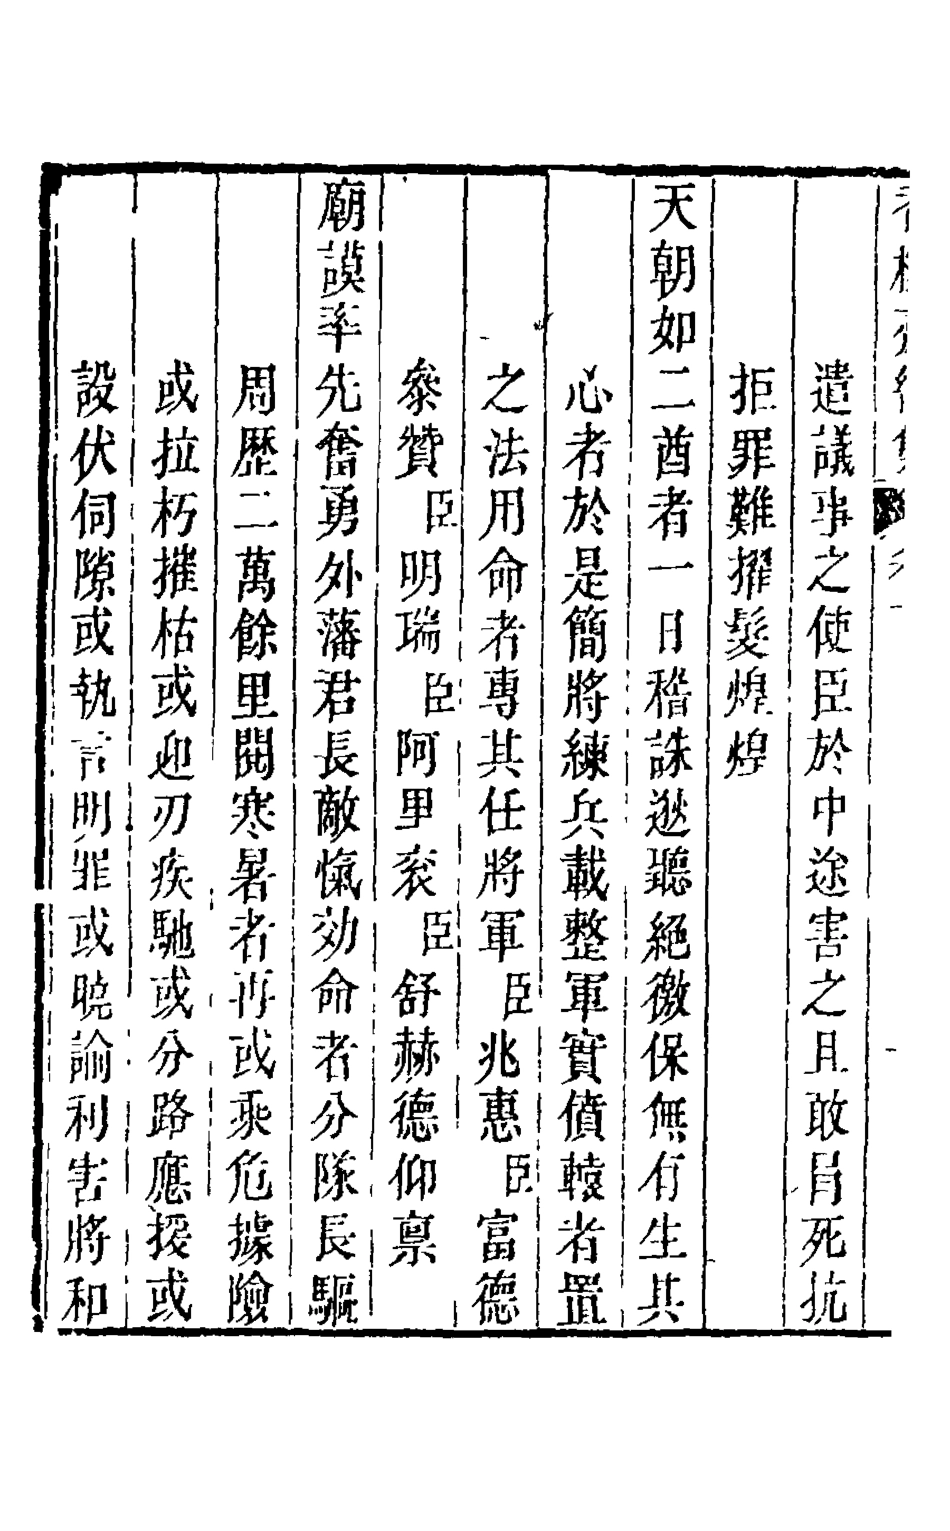 遣議事之使臣於中途害之且敢冒死抗
拒罪難擢髮煌煌
天朝如二酋者一日稽誅逖聽絕徼保無有生其
心者於是簡將練兵載整軍實僨轅者置
之法用命者專其任將軍臣兆惠臣富德
參贊臣明瑞臣阿里袞臣舒赫德仰稟
廟謨率先奮勇外藩君長敵愾効命者分隊長驅
周歷二萬餘里閱寒暑者再或乘危據險
或拉朽摧枯或迎刃疾馳或分路應援或
設伏伺隙或執言明罪或曉諭利害將和